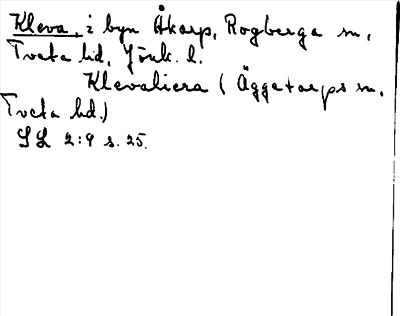 Kleva, i byn Åkarp, Rogberga sn,
Tveta hd, Jönk. l.
Klevaliera (Äggetorps sn,
Tveta hd.)
SL 2:9 s. 25.